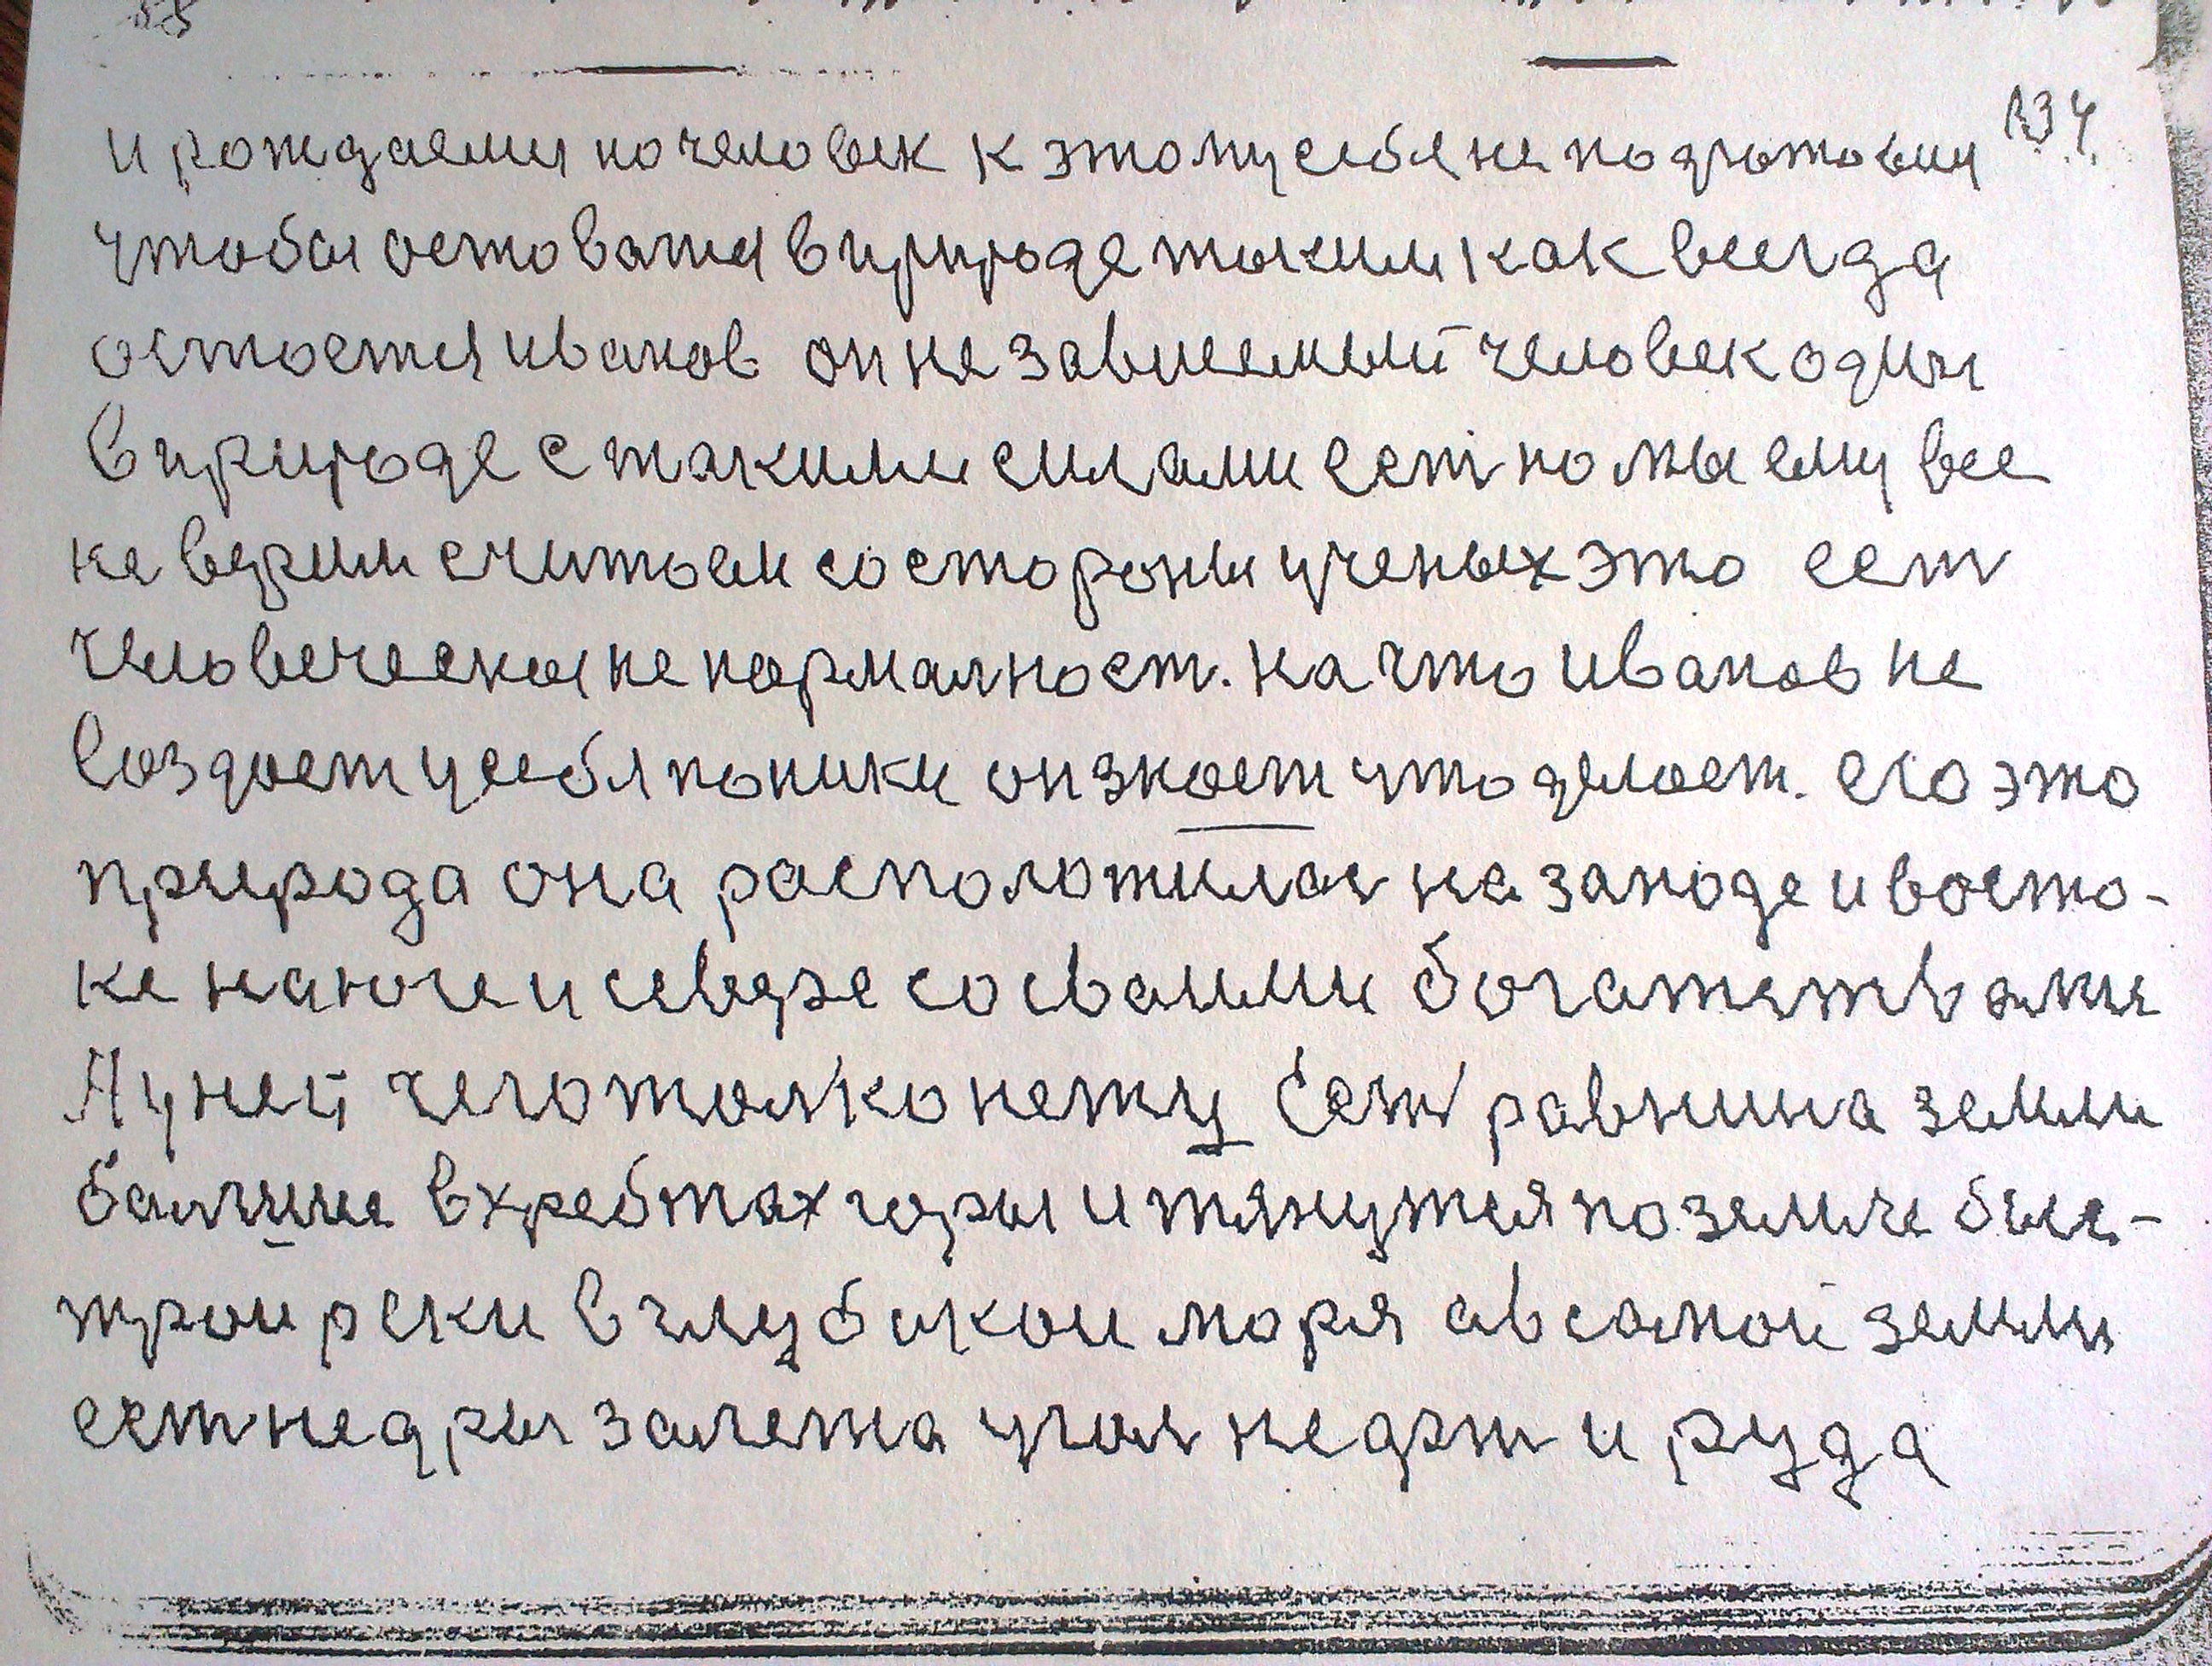 134
и рождаемся но человек к этому себя не подготовил
чтобы оставатся в природе таким как всегда
остается иванов он не зависемый человек один
в природе с такими силами ест но мы ему все
не верим считаем со стороны ученых это ест
человеческая не нормалност. на что иванов не
создает у себя паники он знает что делает. его это
природа она расположилас на западе и восто-
ке на юге и севере со сваими богатствами
А у ней чего толко нету Ест равнина земли
балшие в хребтах горы и тянутся по земле быс-
трои реки в глубокои моря а в самой земли
ест недры залежа угол нефт и руда